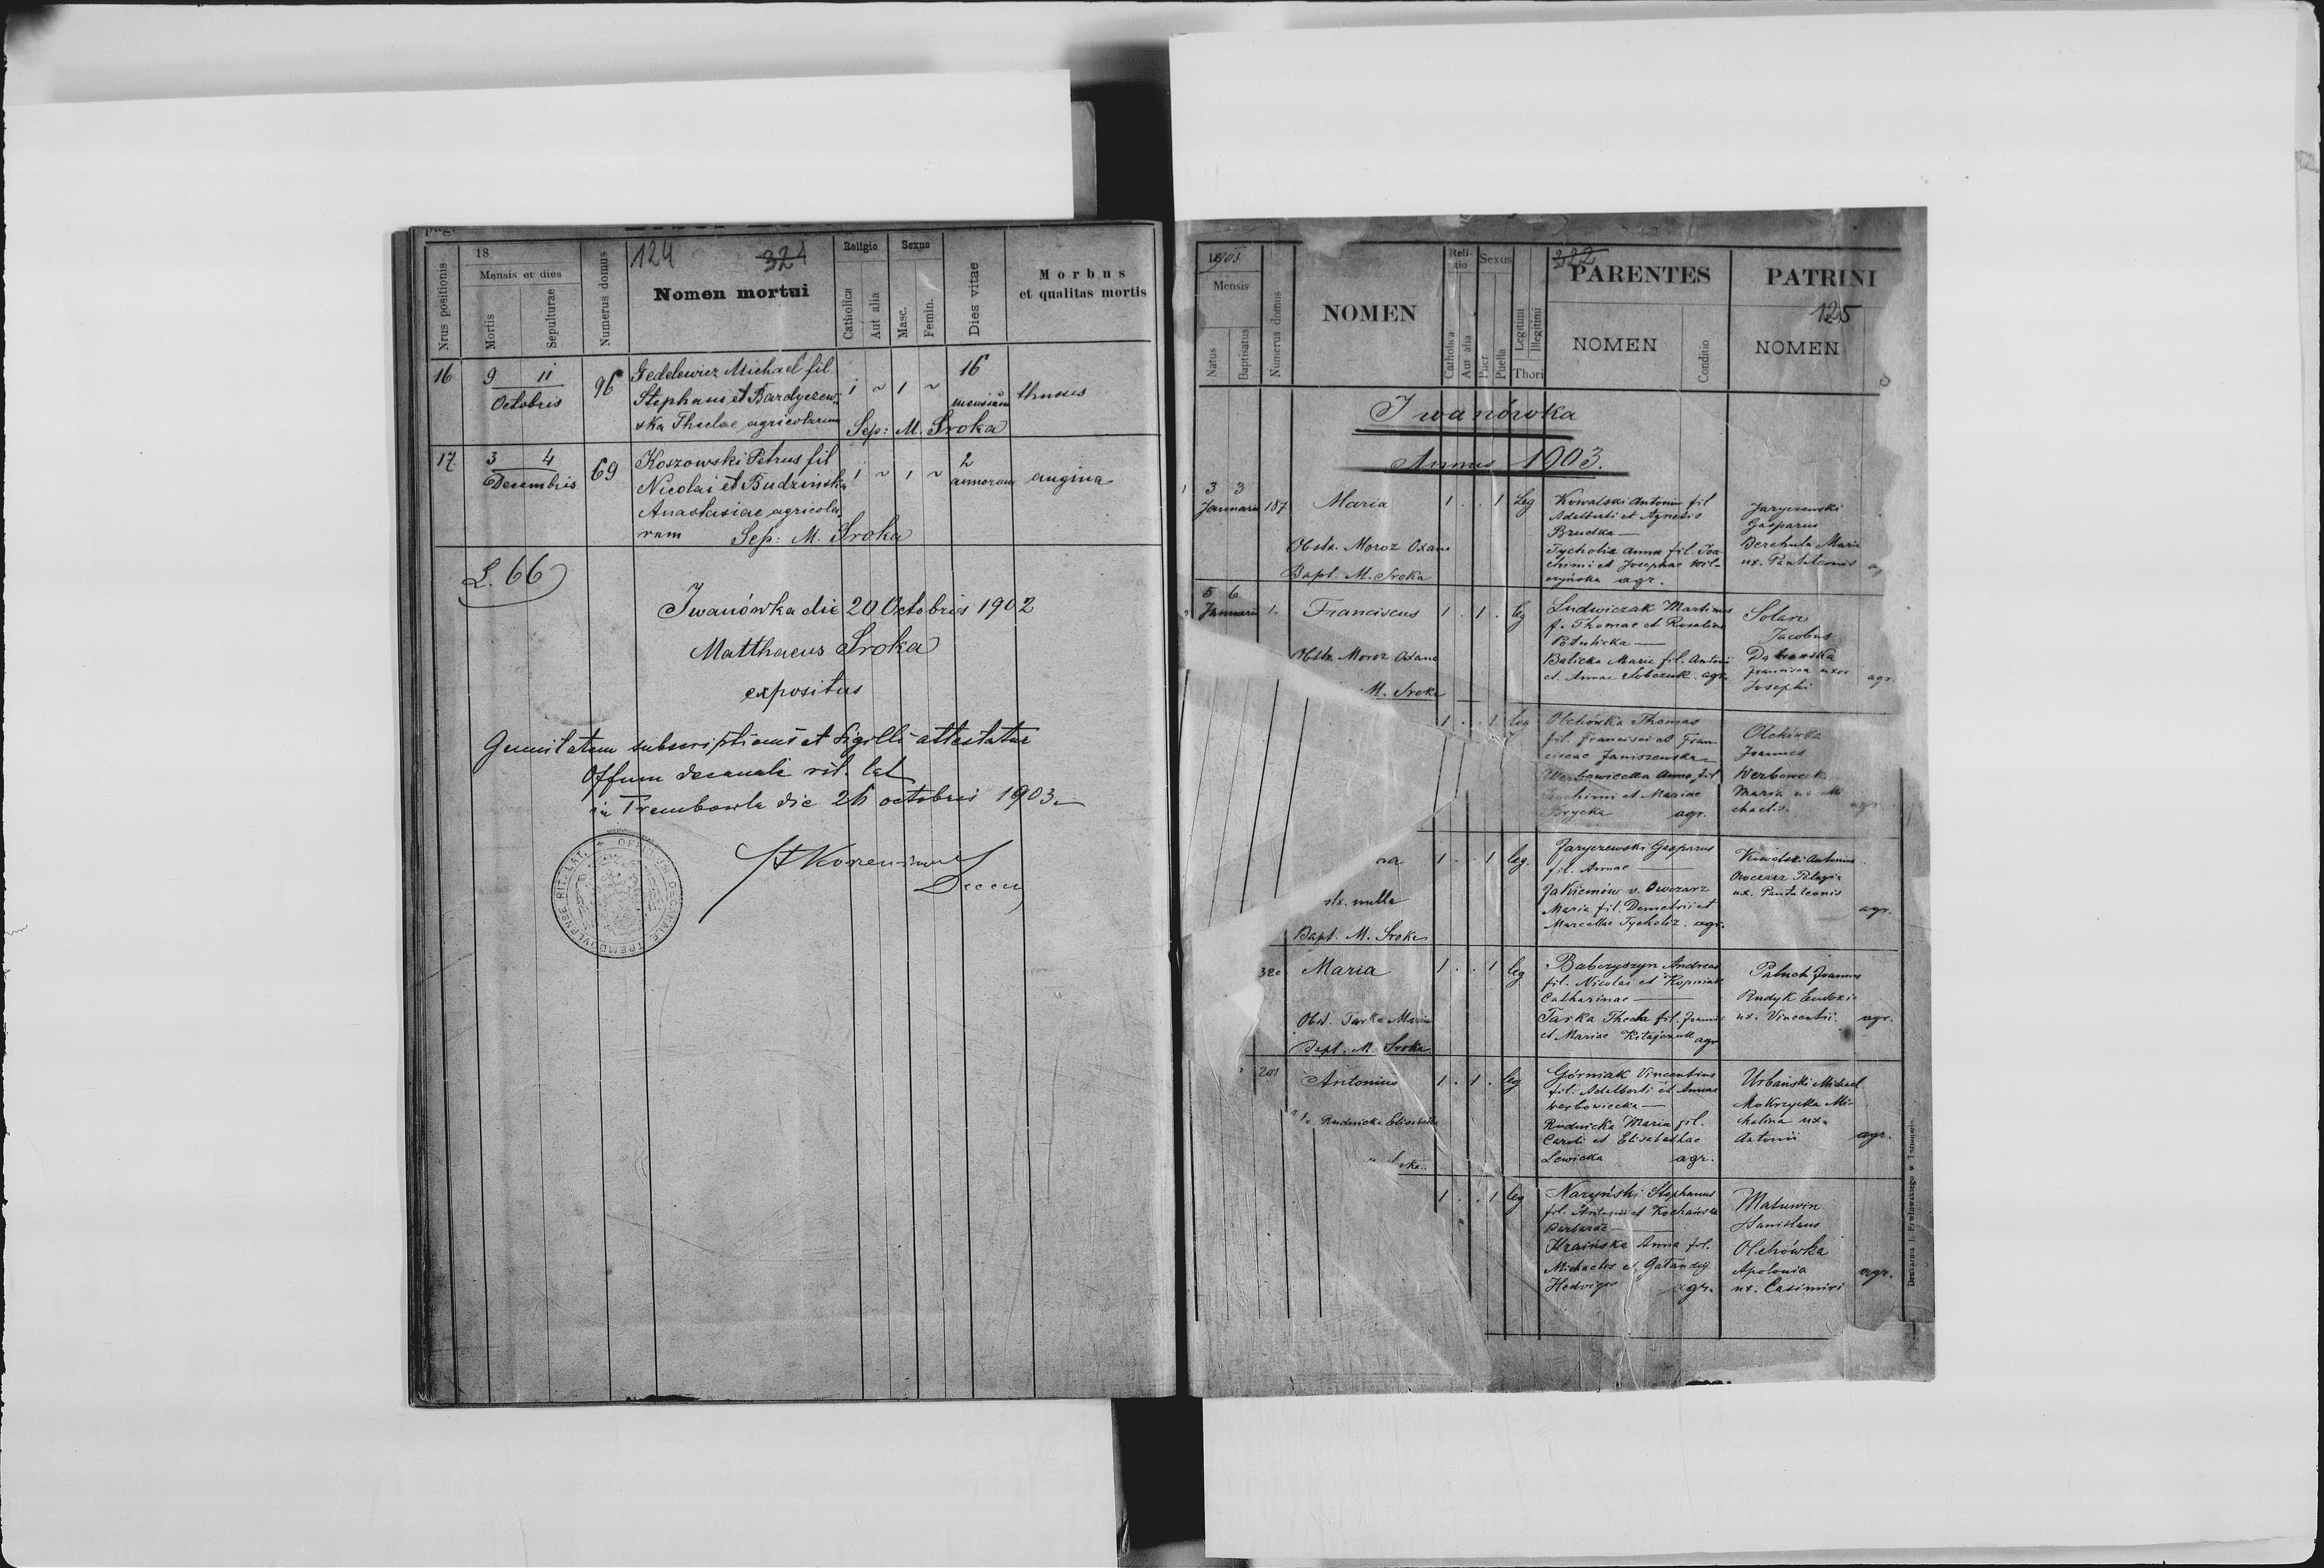 pag.
18
124
324
Religio
Sexus
Nrus positionis
Mensis et dies
Mortis
Sepulturae
Numerus domus
Nomen mortui
Catholica
Aut alia
Masc.
Femin.
Dies vitae
Morbus
et qualitas mortis
16
9 11
Octobris
96
Gedelewicz Michael fil.
Stephani et Bardyczew-
ska Theclae agricolarum
1 ~ 1 ~
16
mensium
thussis
Sep: M. Sroka
17
3 4
Decembris
69
Koszowski Petrus fil
Nicolai et Budzinska
Anastasiae agricola-
rum Sep: M. Sroka
1 ~ 1 ~
2
annorum
angina
L. 66
Iwanówka die 20 Octobris 1902
Matthaeus Sroka
expositus
subscriptionis et sigilli attestatur
Offum decanale rit. lat
in Trembowla die 26 octobris 1903.
OFFICIUM DECANALE TREMBOVLENSE RIT. LAT.
1903
Mensis
Natus
Baptisatus
Numerus domus
NOMEN
Reli-
gio
Sexus
Catholica
Aut alia
Puer
Puella
Legitimi
Illegitimi
Thori
322
PARENTES
NOMEN
Conditio
PATRINI
125
NOMEN
Iwanówka
Annus 1903.
1
3 3
Januarii
187
Maria
Obstx. Moroz Oxana
Bapt. M. Sroka
1 . . 1 Leg
Kowalski Antonius fil
Adalberti et Agnetis
Brudka
Tycholiz Anna fil. Joa-
chimi et Josephae Wil-
czyńska agr.
Jaryczewski
Gasparus
Berehula Maria
ux. Pantaleonis
5 6
Januarii
1.
Franciscus
Obstx. Moroz Oxana
M. Sroka
1 . 1 . leg
Ludwiczak Martinus
f. Thomae et Rosaliae
Balicka Maria fil. Antonii
et Annae Sobczuk. agr.
Solarz
Jacobus
Francisca uxor
Josephi
agr.
1 . . 1 leg
Olchówka Thomas
fil. Francisci et Fran-
ciscae Janiszewska
Werbowiecka Anna fil
Joachimi et Mariae
agr.
Olchówka
Joannes
Maria ux. Mi
chaelis
agr.
na
stx. nulla
Bapt. M. Sroka
1 . . 1 leg.
Jaryczewski Gasparus
fil. Annae
Jakiemów v. Owczarz
Maria fil. Demetrii et
Marcellae Tycholiz. agr.
Kowalski Antonius
Owczarz Pelagia
ux. Pantaleonis
agr.
320
Maria
Obst. Tarka Maria
Bapt. M. Sroka
1 . . 1 leg
Babczyszyn Andreas
fil. Nicolai et Kopniak
Catharinae
Tarka Thecla fil. Joannis
et Mariae agr
Paluch Joannes
Rudyk Eudoxia
ux. Vincentii
agr.
201
Antonius
Rudnicka Elisabetha
1 . 1 . leg
Górniak Vincentius
fil. Adalberti et Annae
Werbowiecka
Rudnicka Maria fil.
Caroli et Elisabethae
Lewicka agr.
Urbański Michael
Mokrzycka Mi-
chalina ux.
Antonii
agr.
1 . . 1 leg
Naryński Stephanus
fil. Antonii et Kochańska
Barbarae
Kraińska Anna fil.
Michaelis et
Hedvigis agr.
Matuwin
Stanislaus
Olchówka
Apolonia
ux. Casimiri
agr.
Drukarnia J. Pawłowskiego w Tarnopolu.